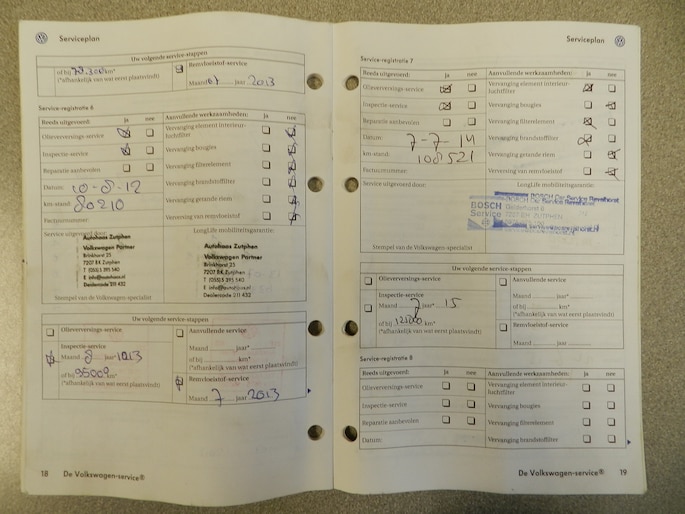 Serviceplan
Uw volgende service-stappen
of bij 79.300 km*
(*afhankelijk van wat eerst plaatsvindt)
Remvloeistof-service
Maand 07 jaar 2013
Service-registratie 6
Reeds uitgevoerd: ja nee
Olieverversings-service
Inspectie-service
Reparatie aanbevolen
Datum: 10-8-12
km-stand: 80210
Factuurnummer:
Aanvullende werkzaamheden: ja nee
Vervanging element interieur-
luchtfilter
Vervanging bougies
Vervanging filterelement
Vervanging brandstoffilter
Vervanging getande riem
Verversing van remvloeistof
Service uitgevoerd door:
Autohaas Zutphen
Volkswagen Partner
Brinkhorst 23
Stempel van de Volkswagen-specialist
LongLife mobiliteitsgarantie:
Autohaas Zutphen
Volkswagen Partner
Brinkhorst 23
Uw volgende service-stappen
Olieverversings-service
Inspectie-service
Maand 8 jaar 2013
of bij 95000 km*
(*afhankelijk van wat eerst plaatsvindt)
Aanvullende service
Maand jaar*
of bij km*
(*afhankelijk van wat eerst plaatsvindt)
Remvloeistof-service
Maand 7 jaar 2013
18 De Volkswagen-service®
Serviceplan
Service-registratie 7
Reeds uitgevoerd: ja nee
Olieverversings-service
Inspectie-service
Reparatie aanbevolen
Datum: 7-7-14
km-stand: 108521
Factuurnummer:
Aanvullende werkzaamheden: ja nee
Vervanging element interieur-
luchtfilter
Vervanging bougies
Vervanging filterelement
Vervanging brandstoffilter
Vervanging getande riem
Verversing van remvloeistof
Service uitgevoerd door:
LongLife mobiliteitsgarantie:
BOSCH
Service
Stempel van de Volkswagen-specialist
Uw volgende service-stappen
Olieverversings-service
Inspectie-service
Maand 7 jaar* 15
of bij km*
(*afhankelijk van wat eerst plaatsvindt)
Aanvullende service
Maand jaar*
of bij km*
(*afhankelijk van wat eerst plaatsvindt)
Remvloeistof-service
Maand jaar
Service-registratie 8
Reeds uitgevoerd: ja nee
Olieverversings-service
Inspectie-service
Reparatie aanbevolen
Datum:
Aanvullende werkzaamheden: ja nee
Vervanging element interieur-
luchtfilter
Vervanging bougies
Vervanging filterelement
Vervanging brandstoffilter
De Volkswagen-service® 19